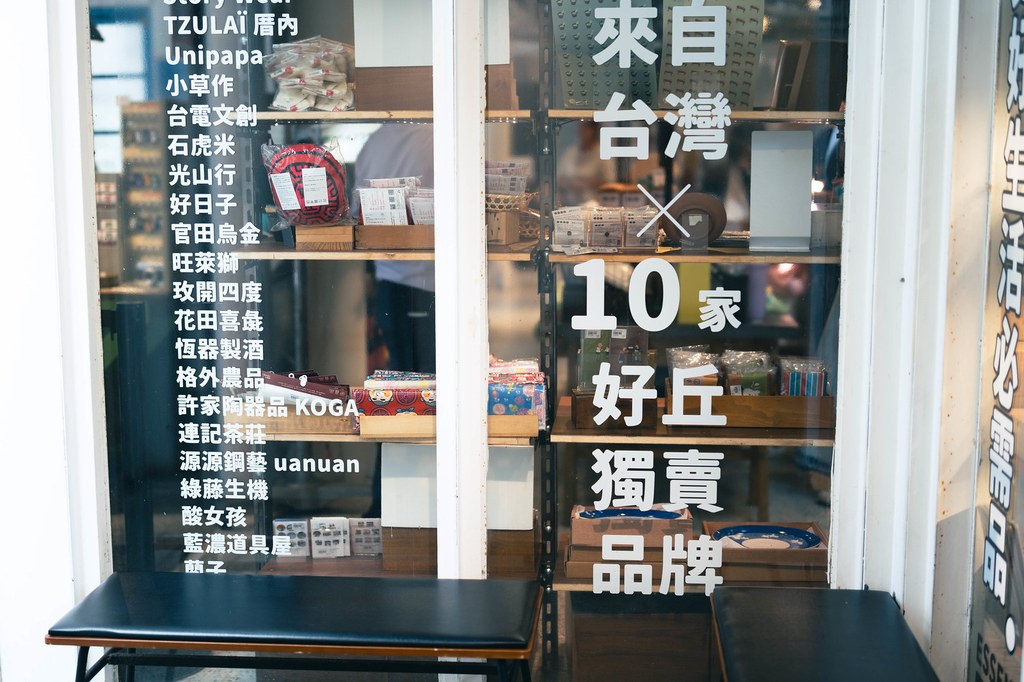 Story Wear
TZULAÏ 厝內
Unipapa
小草作
台電文創
石虎米
光山行
好日子
官田烏金
旺萊獅
玫開四度
花田喜彘
恆器製酒
格外農品
許家陶器品 KOGA
連記茶莊
源源鋼藝 uanuan
綠藤生機
酸女孩
藍濃道具屋
繭子
來自
台灣
×
10 家
好丘
獨賣
品牌
好生活必需品。
ESSEN